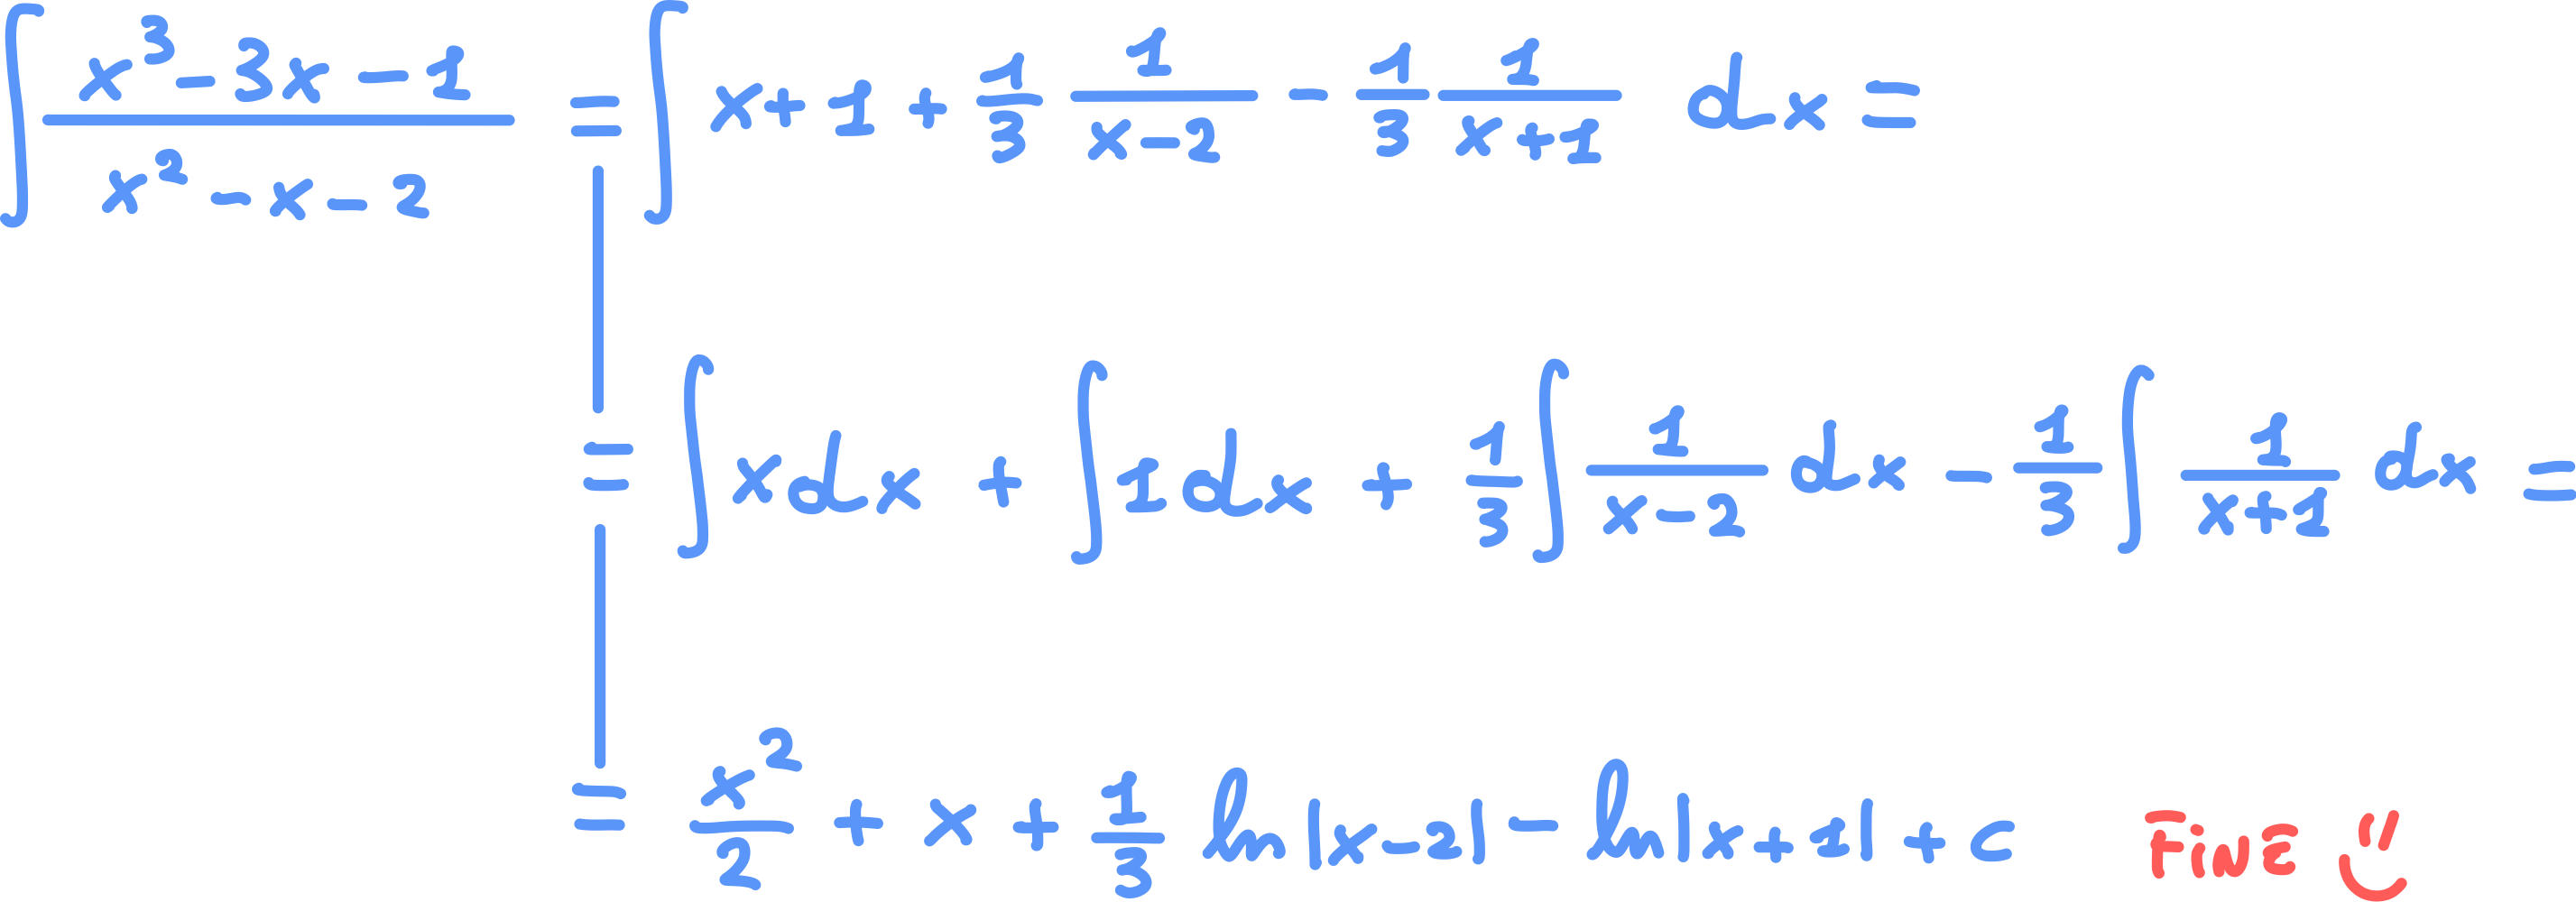 ∫ (x³ - 3x - 1)/(x² - x - 2) = ∫ x + 1 + 1/3 1/(x-2) - 1/3 1/(x+1) dx =
= ∫ x dx + ∫ 1 dx + 1/3 ∫ 1/(x-2) dx - 1/3 ∫ 1/(x+1) dx =
= x²/2 + x + 1/3 ln|x-2| - ln|x+1| + c FINE